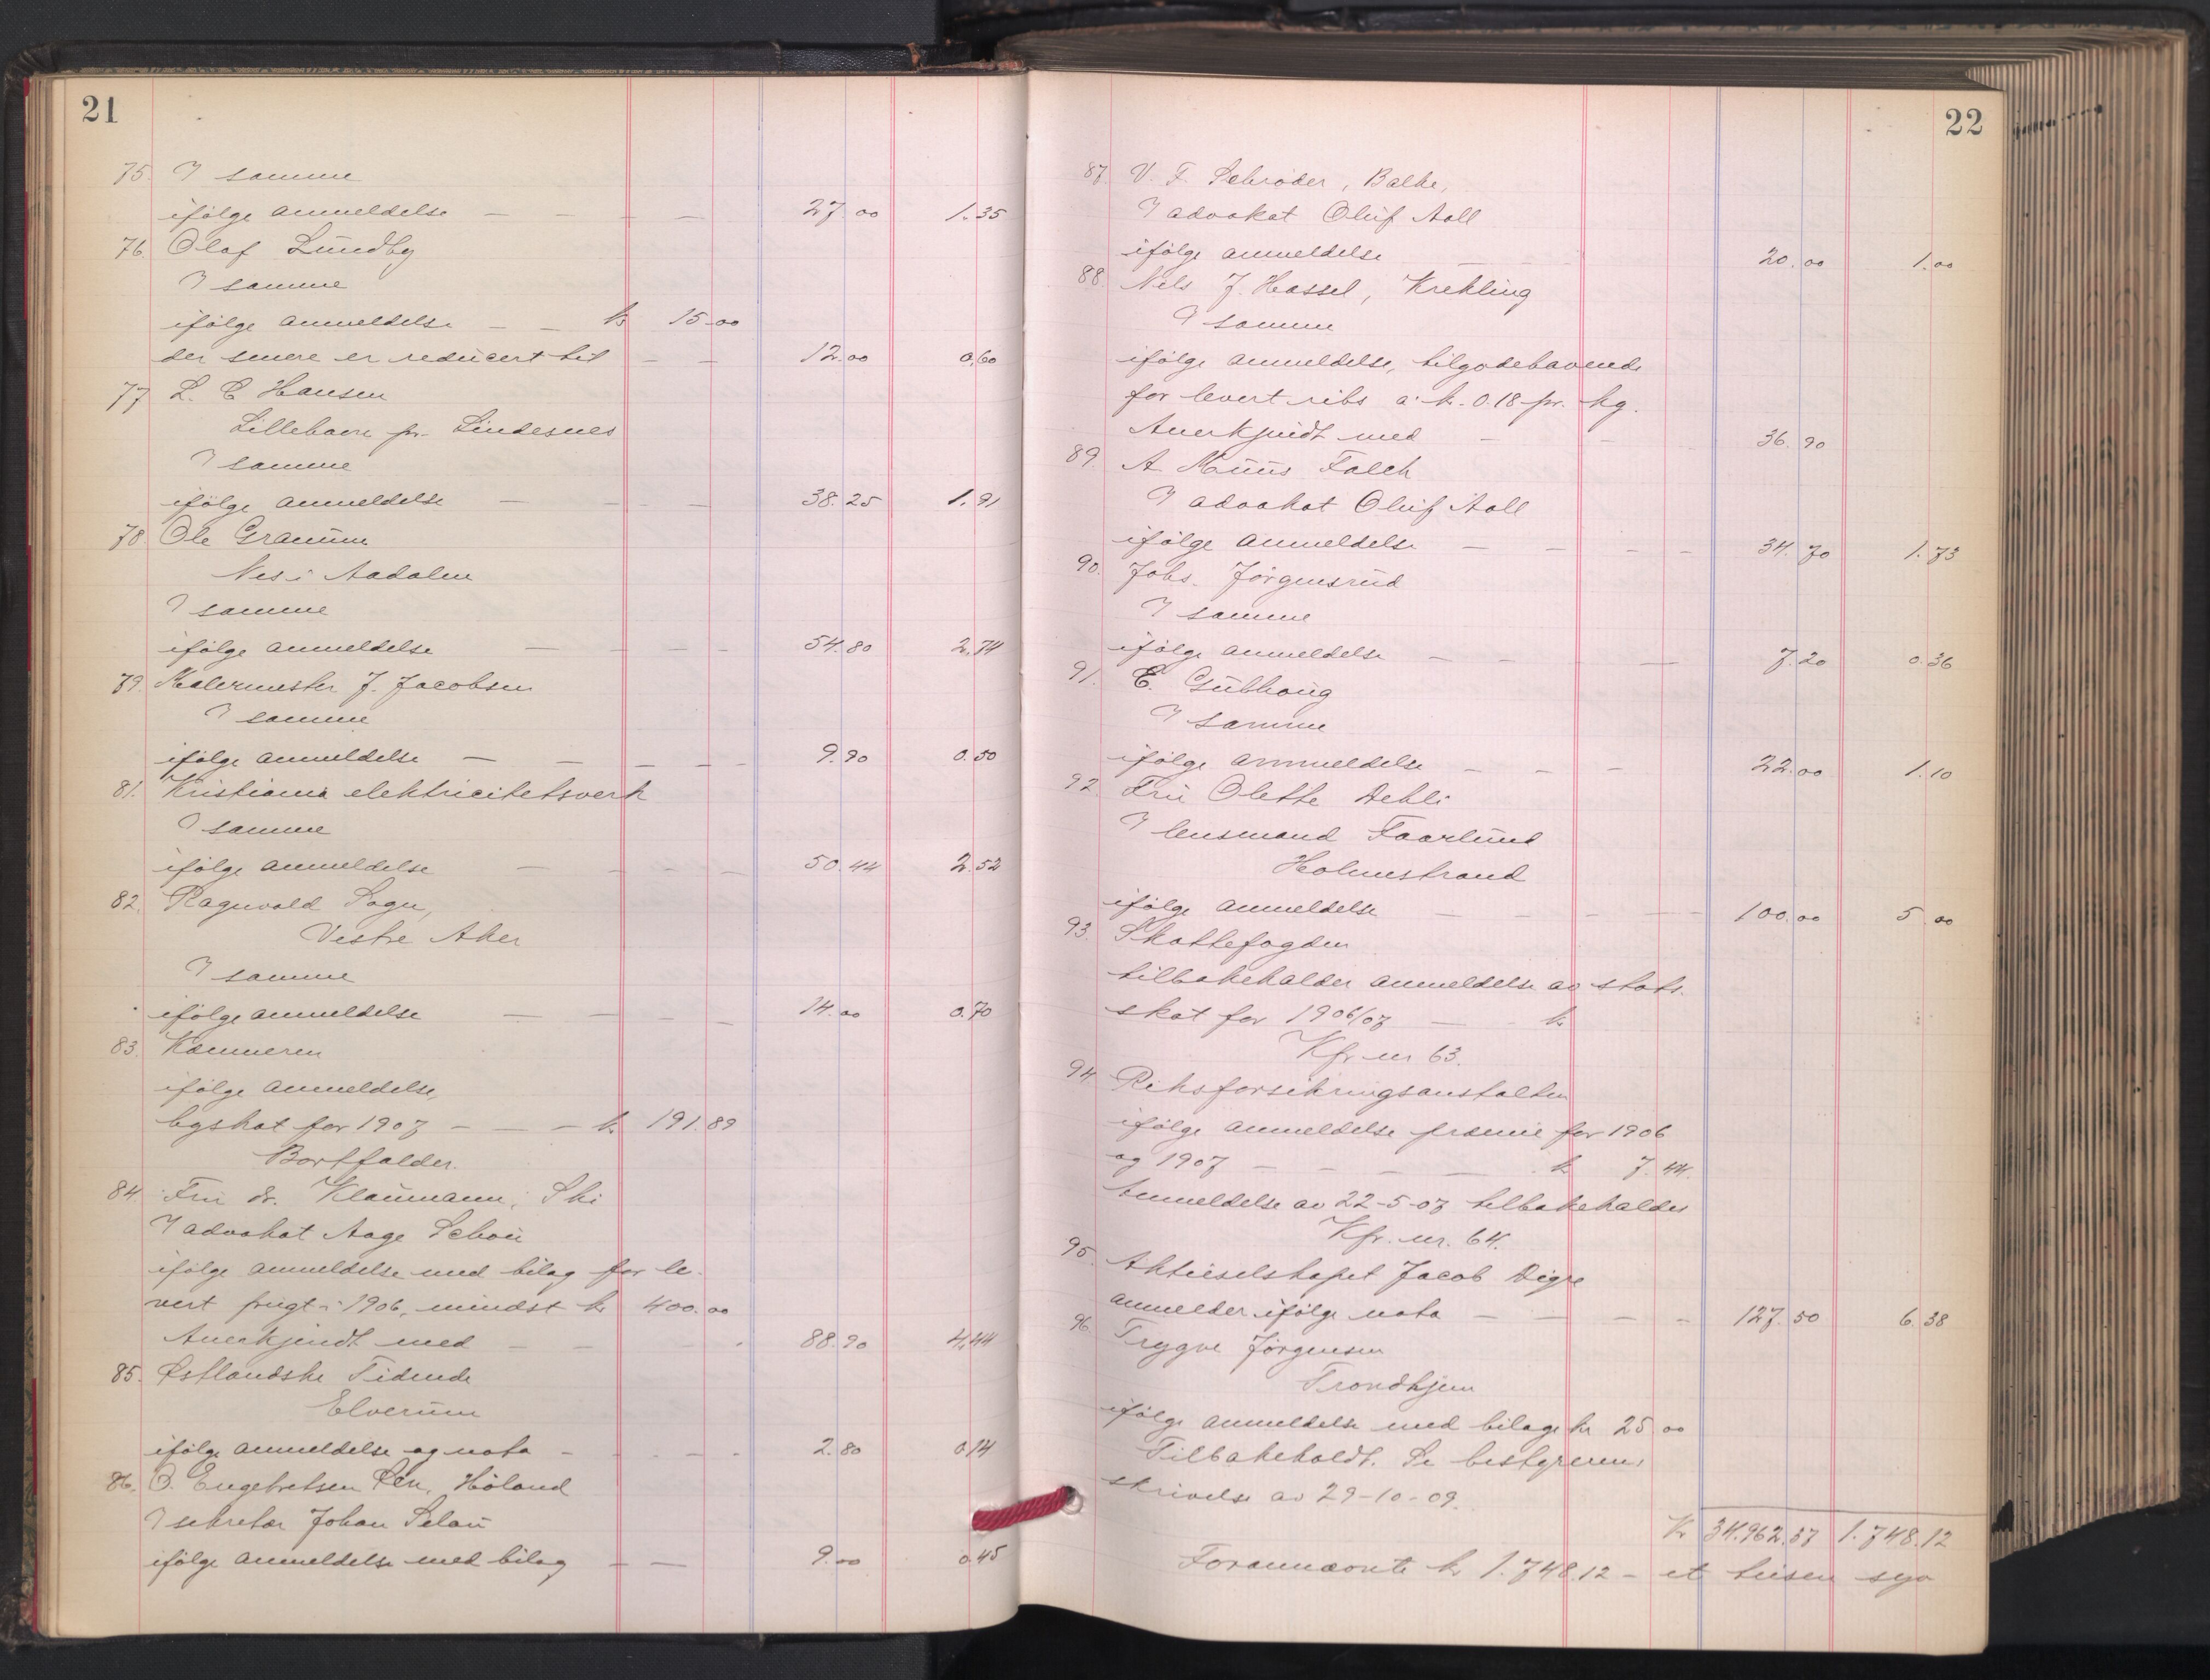 21
75. V samme
ifölge anmeldelse — — — — 27.00 1.35
76. Olaf Lundby
V samme
ifölge anmeldelse — — kr 15.00
der senere er reducert til — — 12.00 0.60
77 L. C Hansen
Lillehavn pr. Lindesnes
V samme
ifölge anmeldelse — — — 38.25 1.91
78. Ole Gramum
Nes i Aadalen
V samme
ifölge anmeldelse — — — — 54.80 2.74
79. Malermester J. Jacobsen
V samme
ifölge anmeldelse — — — — — 9.90 0.50
81. Kristiania elektricitetsverk
V samme
ifölge anmeldelse — — — — 50.44 2.52
82. Ragnvald Sogn,
Vestre Aker
V samme
ifölge anmeldelse — — — — 14.00 0.70
83. Kæmneren
ifölge anmeldelse,
byskat for 1907 — — — kr 191.89
Bortfalder.
84. Fru dr. Klaumann, Ski
V advokat Aage Schou
ifölge anmeldelse med bilag for le-
vert frugt i 1906, mindst kr 400.00
Anerkjendt med — — — 88.90 4.44
85. Östlandske Tidende
Elverum
ifölge anmeldelse og nota — — — 2.80 0.14
86. O. Engebretsen Sen, Höland
V sekretær Johan Selau
ifölge anmeldelse med bilag — — 9.00 0.45
22
87. V. F. Schröder, Balke,
V advokat Oluf Aall
ifölge anmeldelse — — 20.00 1.00
88. Nels J. Hassel, Krekling
V samme
ifölge anmeldelse, tilgodehavende
for levert ribs a kr. 0.18 pr. kg.
Anerkjendt med — — 36.90
89. A Muus Falck
V advokat Oluf Aall
ifölge anmeldelse — — — — 34.70 1.73
90. Johs. Jörgensrud
V samme
ifölge anmeldelse — — — — 7.20 0.36
91. E. Gubhoug
V samme
ifölge anmeldelse — — — 22.00 1.10
92. Fru Olette Dehli
V lensmand Faarlund
Holmestrand
ifölge anmeldelse — — — — — 100.00 5.00
93. Skattefogden
tilbakeholder anmeldelse av stats-
skat for 1906/07 — kr
Kfr. nr 63.
94 Riksforsikringsanstalten
ifölge anmeldelse præmie for 1906
og 1907 — — — — kr 7.44.
Anmeldelse av 22-5-07 tilbakeholdes
Kfr. nr. 64.
95. Aktieselskapet Jacob Digre
anmelder ifölge nota — — — — 127.50 6.38
96. Trygve Jörgensen
Trondhjem
ifölge anmeldelse med bilag kr 25.00
Tilbakeholdt. Se bestyrerens
skrivelse av 29-10-09.
Kr 34.962.57 1.748.12
Forannævnte kr 1.748.12 — et tusen syv